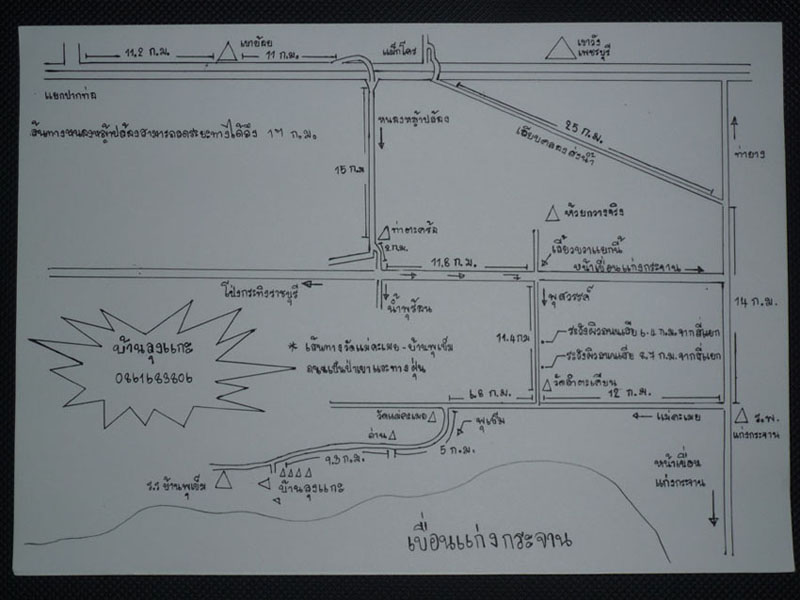 11.2 ก.ม.
เขาอีสร
11 ก.ม.
แม็กโคร
เขาวัง
เพชรบุรี
แยกปากท่อ
เส้นทางหนองหญ้าปล้องสามารถลดระยะทางได้ถึง 17 ก.ม.
หนองหญ้าปล้อง
15 ก.ม
25 ก.ม.
เลียบคลองส่งน้ำ
ท่ายาง
ท่าตะคร้อ
2 ก.ม.
ห้วยกวางจริง
เลี้ยวขวาแยกนี้
11.8 ก.ม.
หน้าเขื่อนแก่งกระจาน
โป่งกระทิงราชบุรี
น้ำพุร้อน
พุสวรรค์
14 ก.ม.
บ้านลุงแกะ
0861683806
* เส้นทางวัดแม่คะเมย-บ้านพุเข็ม
ถนนเป็นป่าเขาและทางฝุ่น
11.4 กม
ระวังผิวถนนเสีย ก.ม.จากสี่แยก
ระวังผิวถนนเสีย 8.7 ก.ม.จากสี่แยก
12 ก.ม.
6.8 ก.ม.
วัดแม่คะเมย
พุเข็ม
แม่คะเมย
ร.พ.
แก่งกระจาน
ด่าน
9.3 ก.ม.
5 ก.ม.
ร.ร.บ้านพุเข็ม
บ้านลุงแกะ
หน้าเขื่อน
แก่งกระจาน
เขื่อนแก่งกระจาน